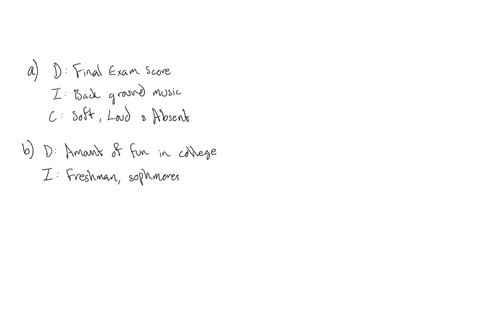 a) D: Final Exam Score
I: Back ground music
C: Soft, Loud & Absent
b) D: Amount of fun in college
I: Freshman, sophmores